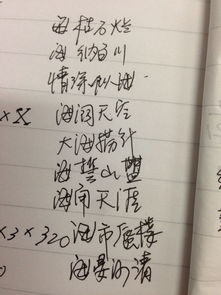 海枯石烂
海纳百川
情深似海
× X 海阔天空
大海捞针
海誓山盟
海角天涯
×3×320 海市蜃楼
海晏河清